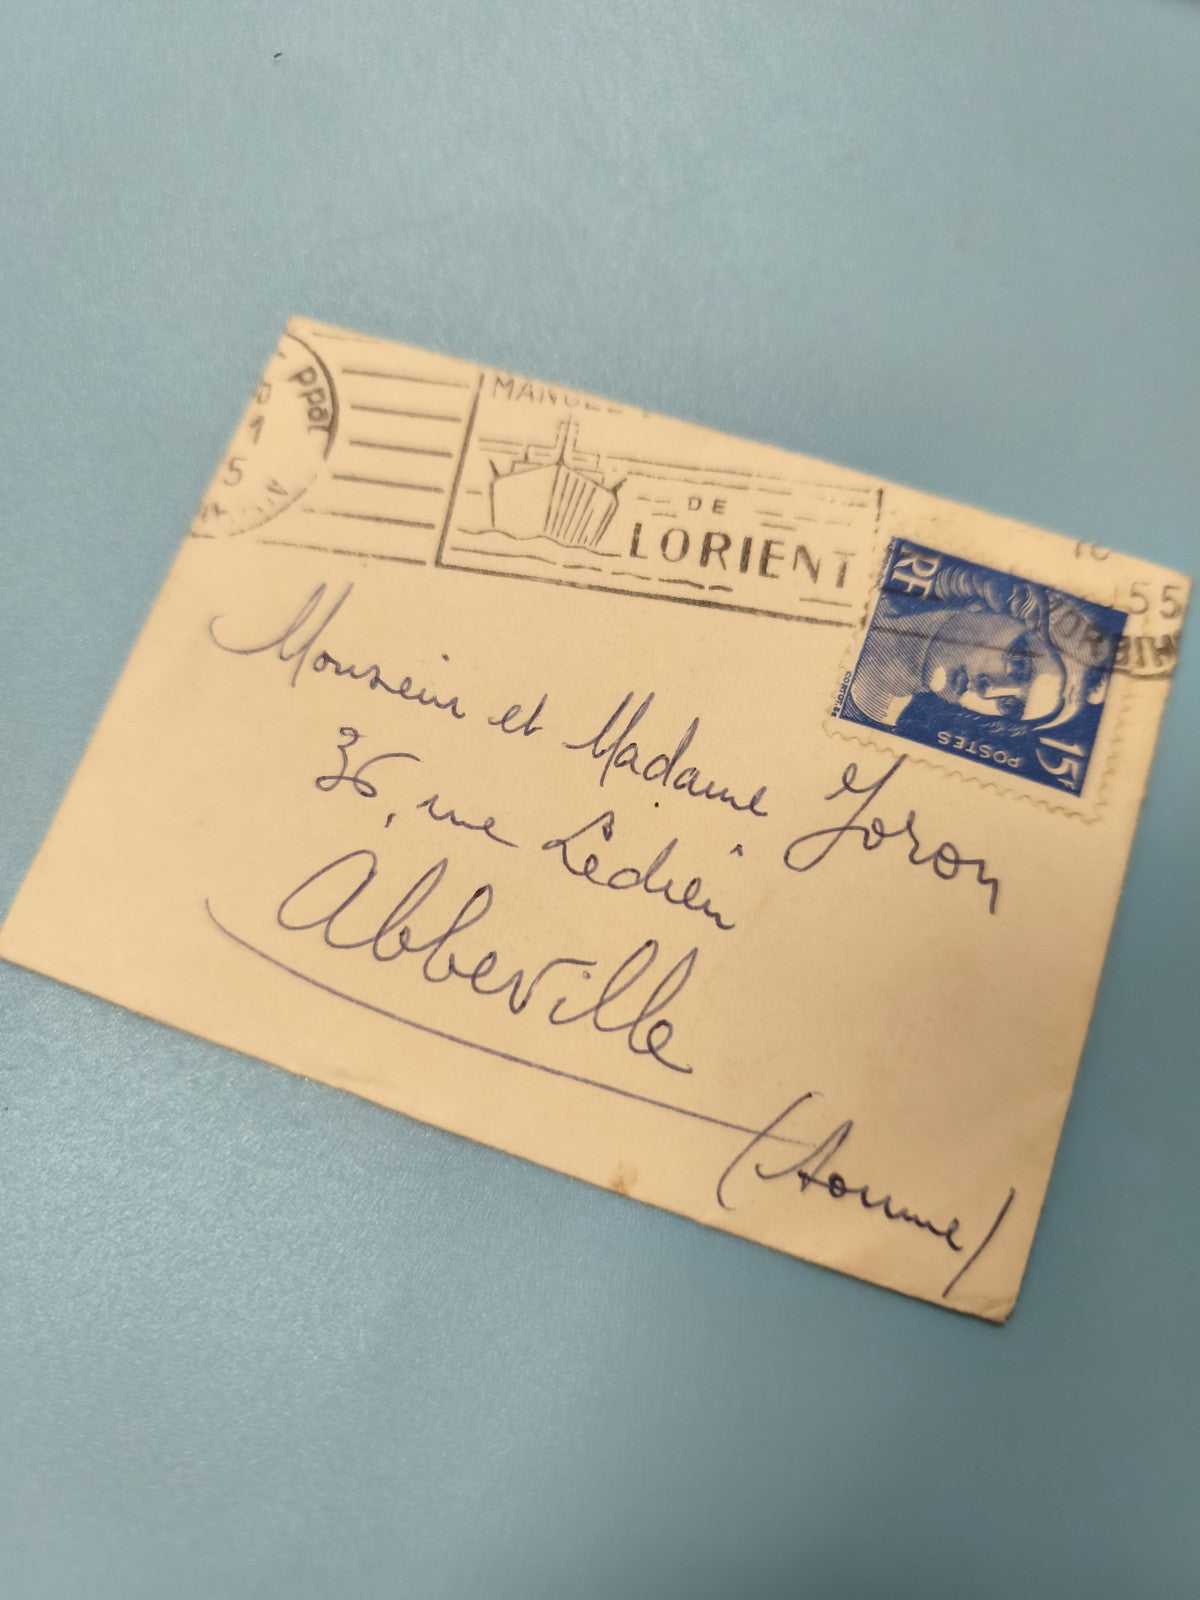 DE
LORIENT
55
RF
POSTES
15F
Monsieur et Madame Joron
36, rue Ledien
Abbeville
(Somme)